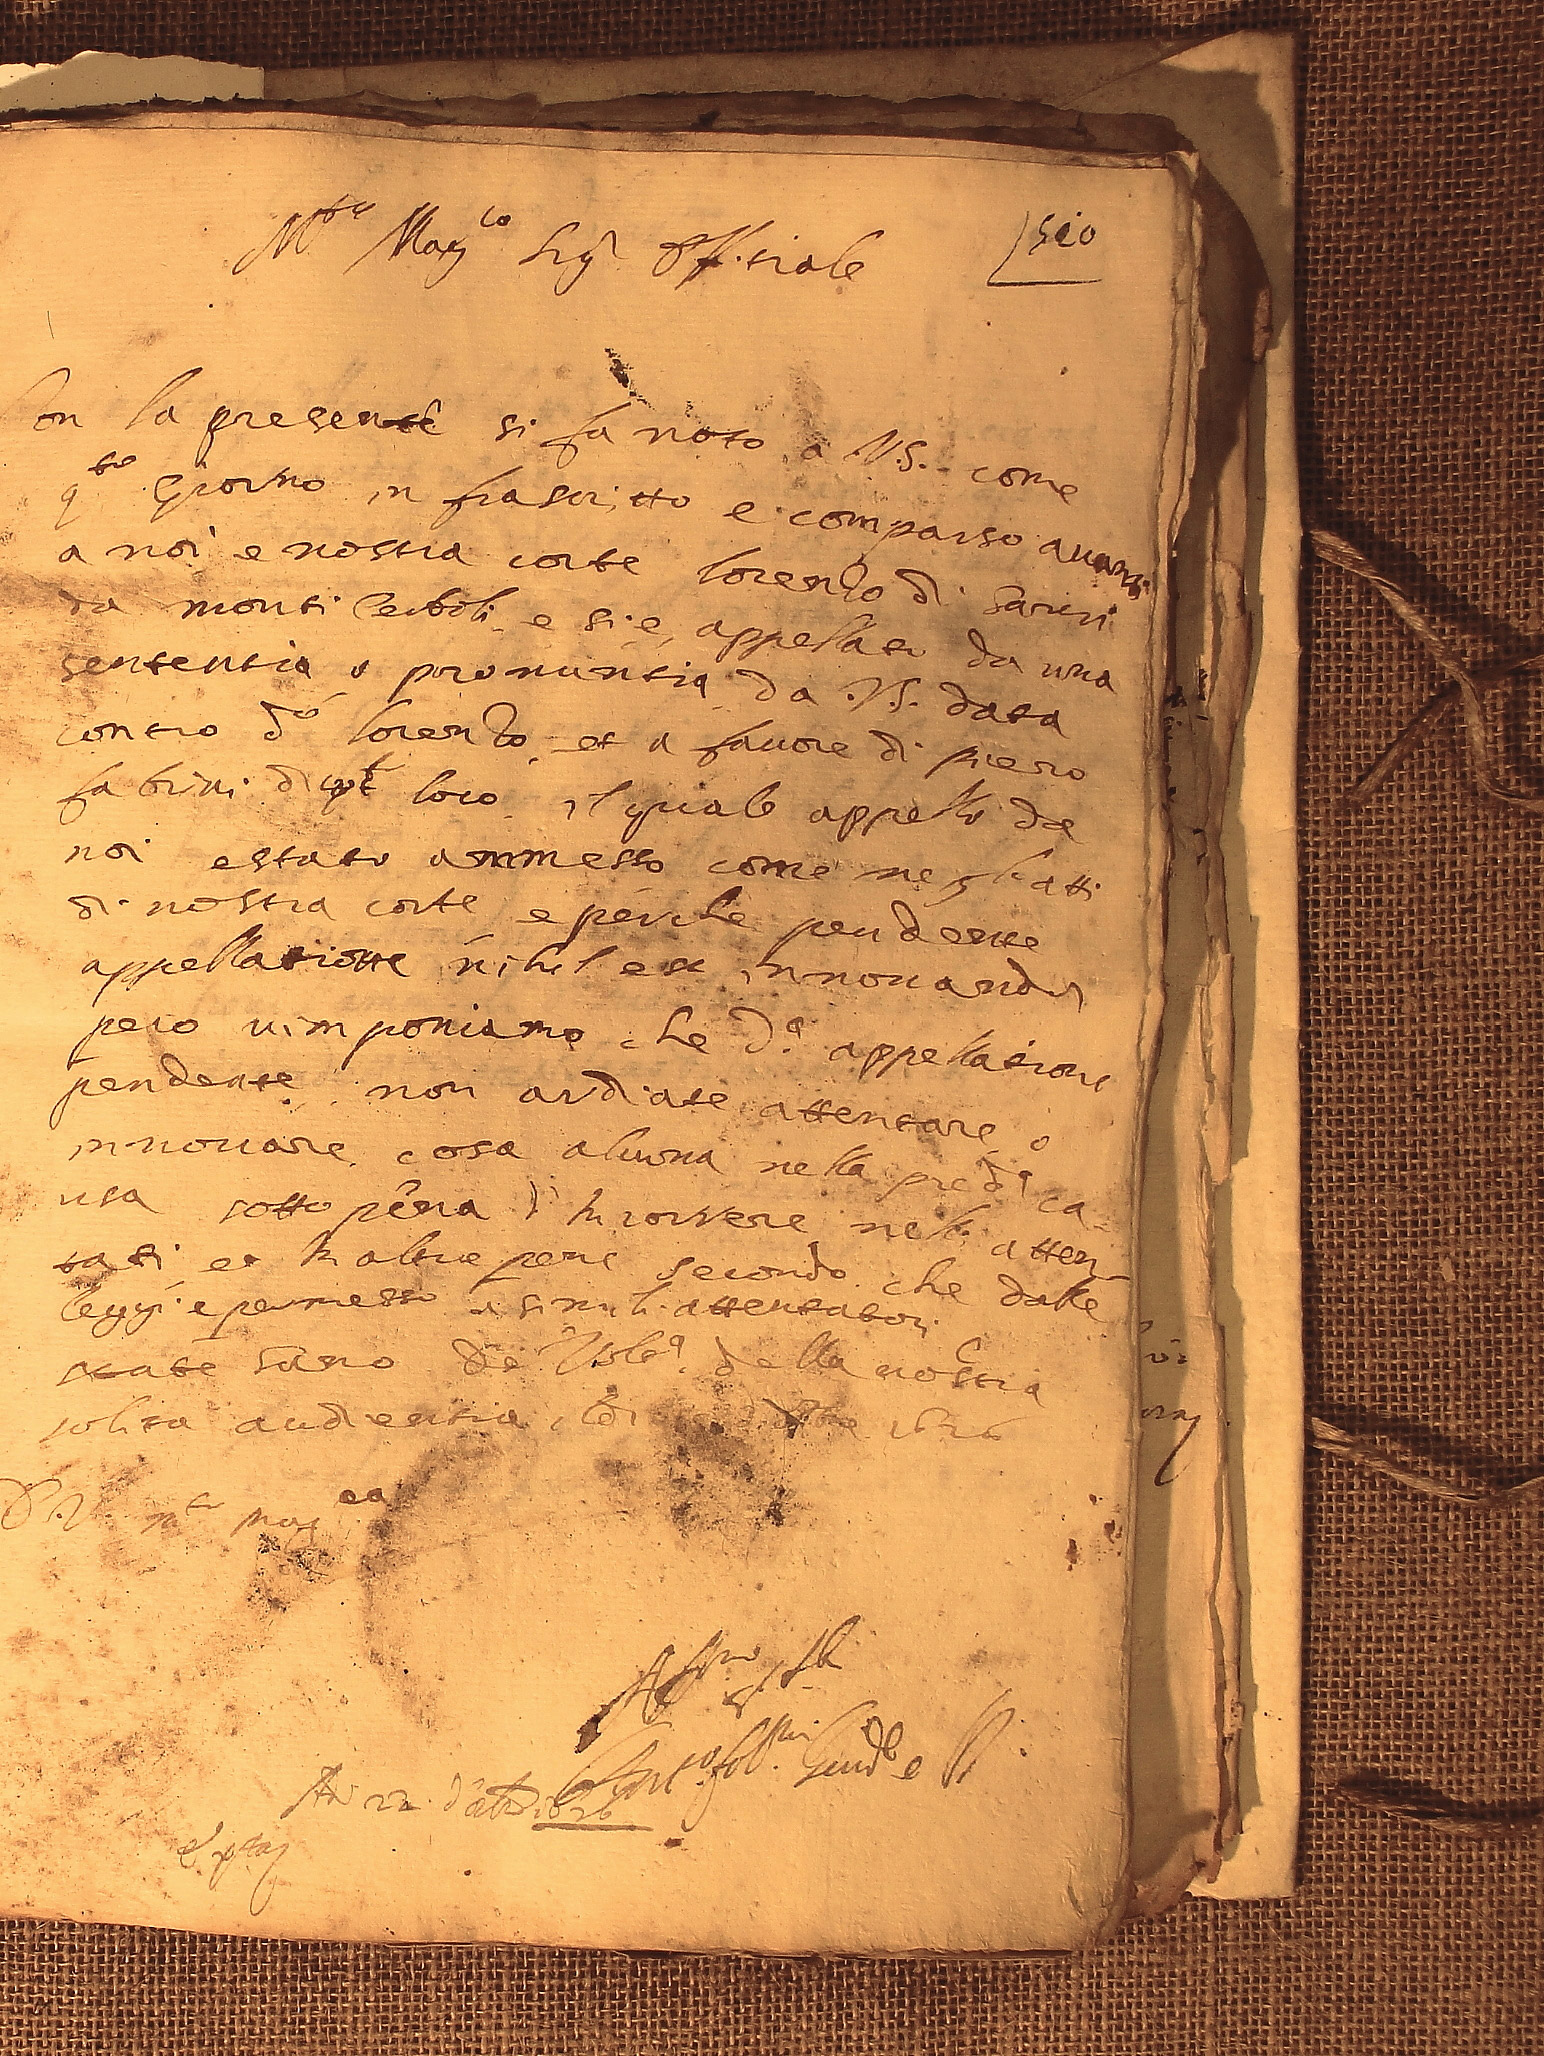 M.to Mag.co Sig.r Offitiale
510
Con la presente si fa noto a V.S. come
q.to giorno in frascritto e comparso avanti
a noi e nostra corte lorenzo di
da monti Cerboli e sie appellato da una
sententia o pronuntia da V.S. data
contro d.o lorenzo et a favore di piero
fabrini di loco il quale appello da
noi estato ammesso come negl atti
di nostra corte e perche pendente
appellatione nihil est innovandu
pero vimponiamo che d.a appellatione
pendente non ardiate attentare o
innovare cosa alcuna nella pred.a ca
usa sotto pena d'incorrere neli atten
tati et in altre pene secondo che dalle
leggi e permesso a simili attentatori
state sano Di Vol.a della nostra
solita audientia li 1626
D.V. m.to mag.ca
Adi 22 d' 1626